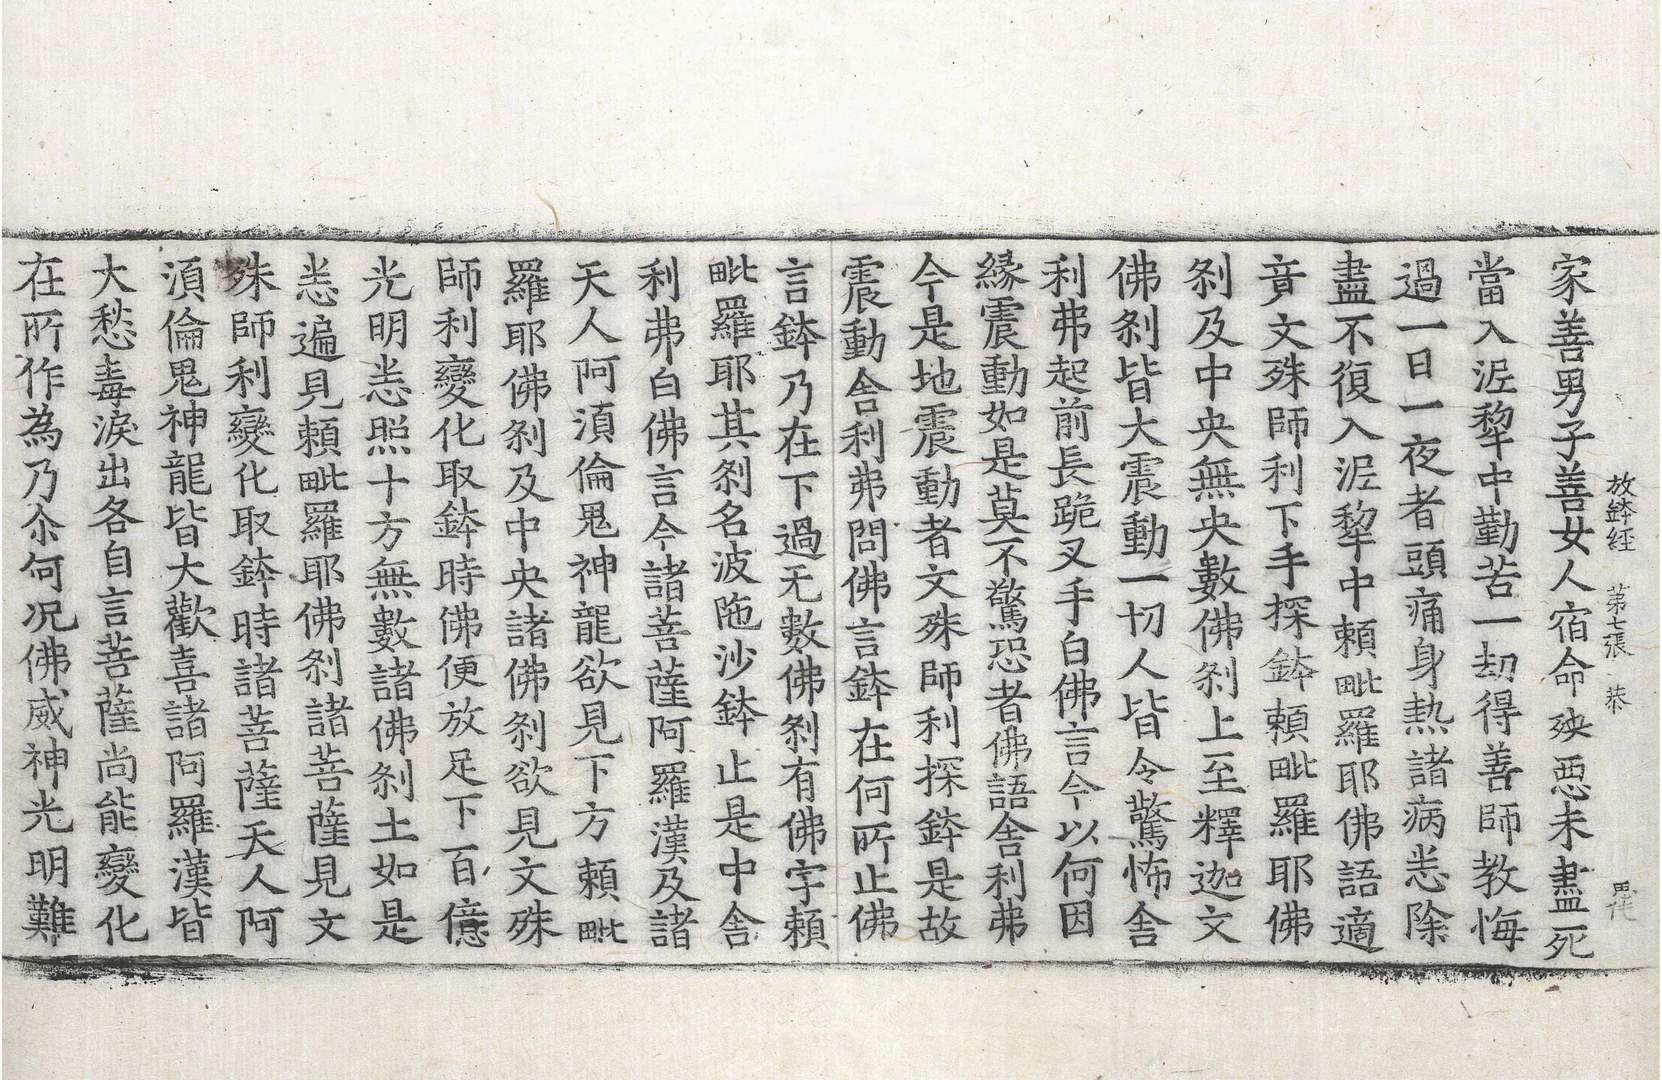 放鉢経 第七張 恭
家善男子善女人宿命殃惡未盡死
當入泥犂中勤苦一劫得善師教悔
過一日一夜者頭痛身熱諸病悉除
盡不復入泥犂中頼毗羅耶佛語適
音文殊師利下手探鉢頼毗羅耶佛
刹及中央無央數佛刹上至釋迦文
佛刹皆大震動一切人皆令驚怖舎
利弗起前長跪叉手白佛言今以何因
緣震動如是莫不驚恐者佛語舎利弗
今是地震動者文殊師利探鉢是故
震動舎利弗問佛言鉢在何所止佛
言鉢乃在下過无數佛刹有佛字頼
毗羅耶其刹名波陁沙鉢止是中舎
利弗白佛言今諸菩薩阿羅漢及諸
天人阿湏倫鬼神龍欲見下方頼毗
羅耶佛刹及中央諸佛刹欲見文殊
師利變化取鉢時佛便放足下百億
光明悉照十方無數諸佛刹土如是
悉遍見頼毗羅耶佛刹諸菩薩見文
殊師利變化取鉢時諸菩薩天人阿
湏倫鬼神龍皆大歡喜諸阿羅漢皆
大愁毒淚出各自言菩薩尚能變化
在所作為乃尒何况佛威神光明難